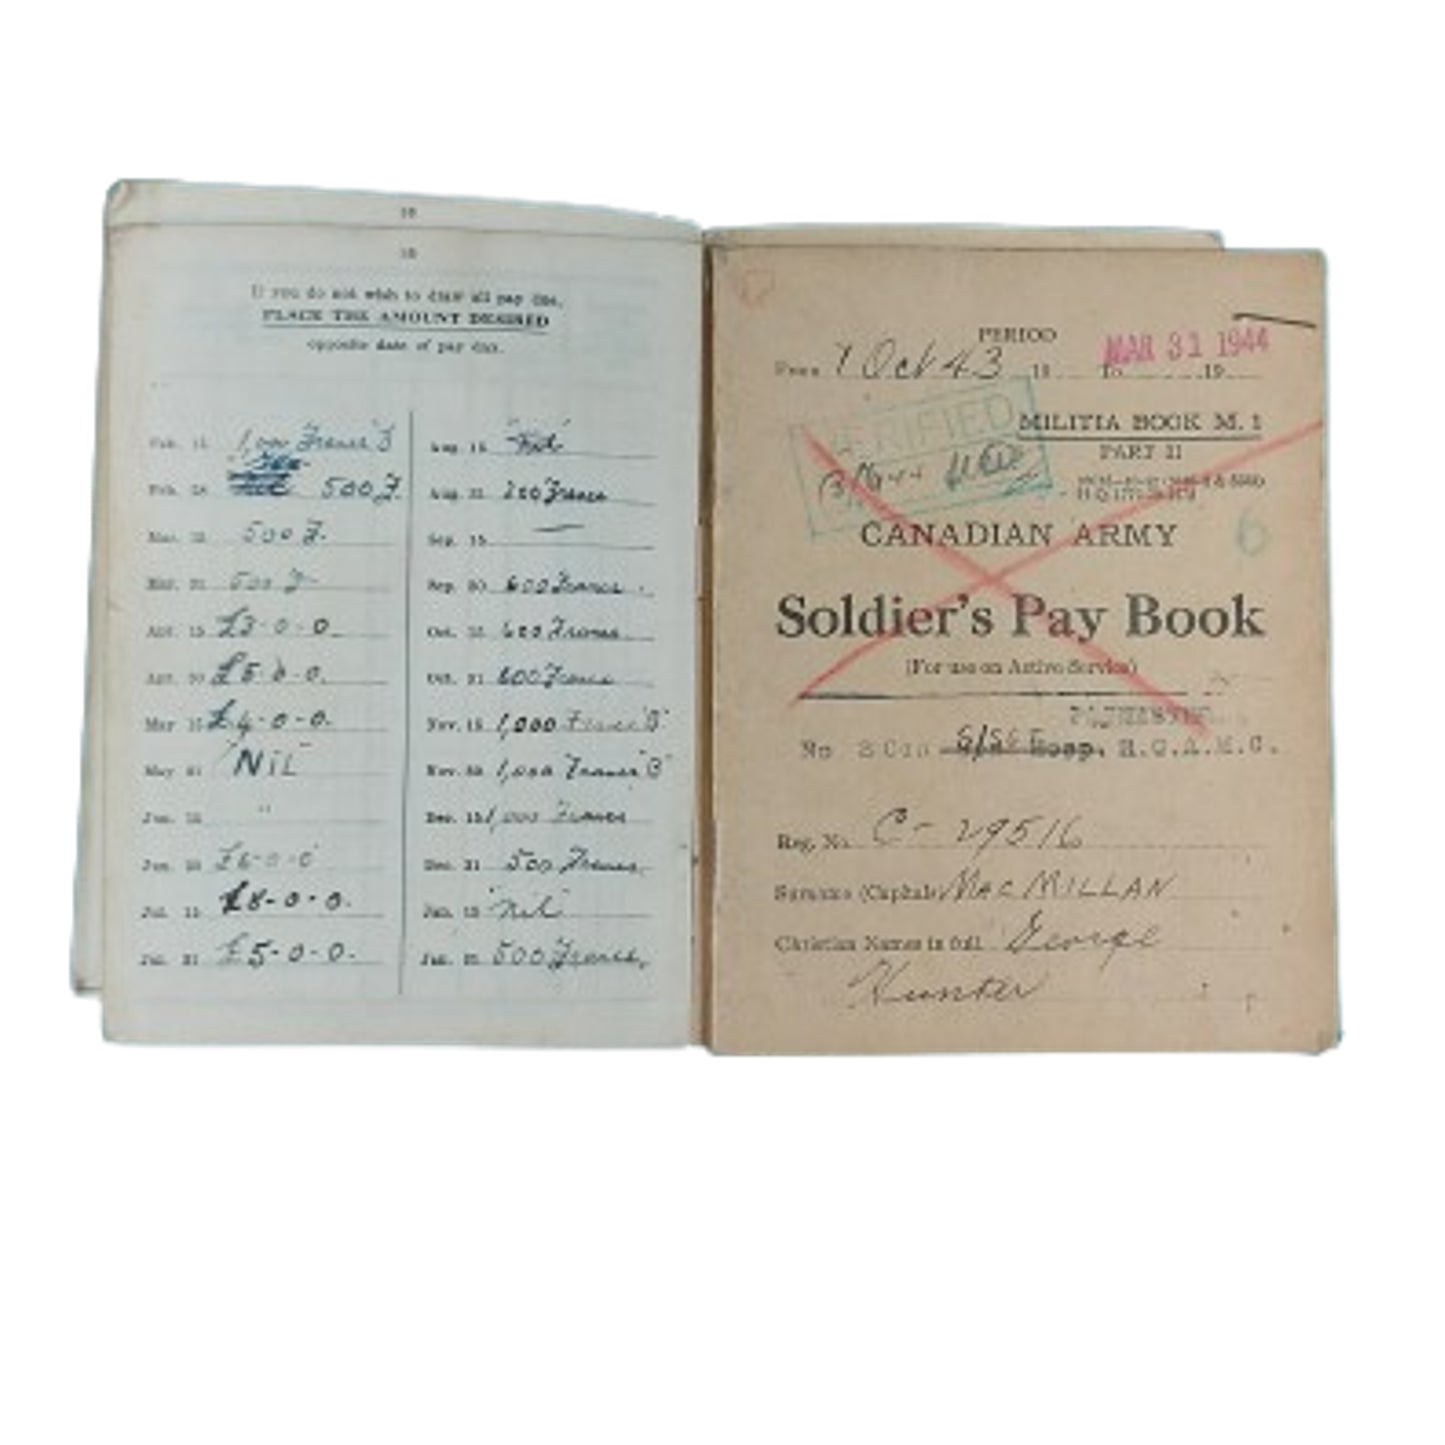 If you do not wish to draw all pay due,
PLACE THE AMOUNT DESIRED
opposite date of pay day.
Feb. 15 1,000 Francs B
Feb. 28 500 F.
500 F.
Mar. 31 500 F
Apr. 15 £3-0-0
Apr. 30 £5-0-0.
May 15 £4-0-0.
May 31 NiL
Jun. 15 "
Jun. 30 £6-0-0
Jul. 15 £8-0-0.
Jul. 31 £5-0-0.
Aug. 15 "Nil"
Aug. 31 200 Francs
Sep. 15 —
Sep. 30 600 Francs.
Oct. 15 600 Francs
Oct. 31 600 Francs
Nov. 15 1,000 Francs "B"
Nov. 30 1,000 Francs "B"
Dec. 15 1,000 Francs
Dec. 31 500 Francs.
Jan. 15 "nil"
Jan. 31 500 Francs.
PERIOD
From 1 Oct 43 19 To MAR 31 1944 19
VERIFIED
MILITIA BOOK M. 1
PART II
6
CANADIAN ARMY
Soldier's Pay Book
(For use on Active Service)
PAYMASTER
No 2 Cdn Hosp. R.C.A.M.C.
Reg. No. C-29516
Surname (Capitals) MACMILLAN
Christian Names in full George
Hunter